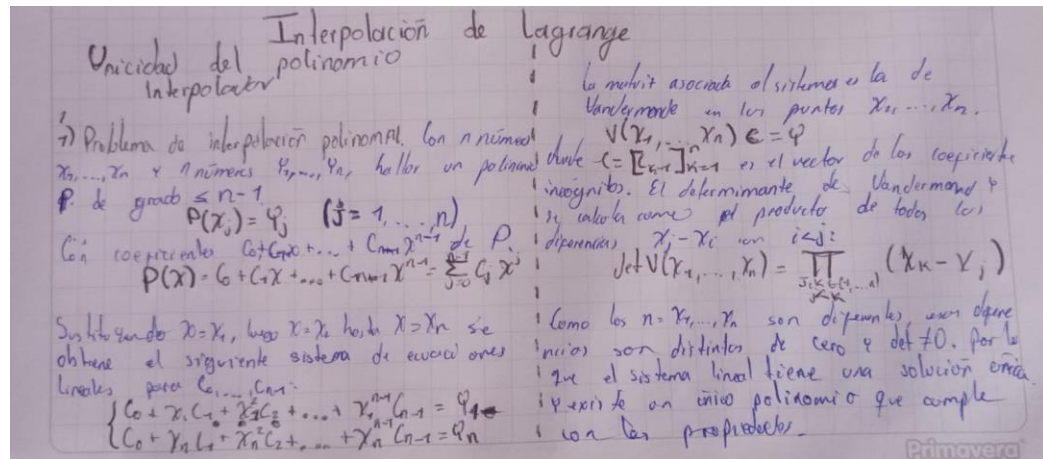 Interpolación de Lagrange
Unicidad del polinomio
Interpolador
1) Problema de interpolación polinomial. Con n números
x₁,...,xₙ y n números φ₁,...,φₙ, hallar un polinomio
P. de grado ≤ n-1
P(xⱼ) = φⱼ (j = 1,...,n)
Con coeficientes C₀+C₁x+...+Cₙ₋₁xⁿ⁻¹ de P.
P(x) = C₀+C₁x+...+Cₙ₋₁xⁿ⁻¹ = Σⱼ₌₀ⁿ⁻¹ Cⱼ xʲ
Sustituyendo x=x₁, luego x=x₂ hasta x=xₙ se
obtiene el siguiente sistema de ecuaciones
lineales para C₀,...,Cₙ₋₁:
C₀ + x₁C₁ + x₁²C₂ + ... + x₁ⁿ⁻¹Cₙ₋₁ = φ₁
C₀ + xₙC₁ + xₙ²C₂ + ... + xₙⁿ⁻¹Cₙ₋₁ = φₙ
la matriz asociada al sistema es la de
Vandermonde en los puntos x₁,...,xₙ.
V(x₁,...,xₙ) c = φ
donde c = [Cₖ₋₁]ₖ₌₁ⁿ es el vector de los coeficientes
incógnitos. El determinante de Vandermond y
se calcula como el producto de todas las
diferencias xⱼ - xᵢ con i<j:
det V(x₁,...,xₙ) = ∏ j,k∈{1,...,n} j<k (xₖ - xⱼ)
Como los n= x₁,...,xₙ son diferentes, esas difere
ncias son distintas de cero y det ≠0. Por lo
que el sistema lineal tiene una solución única
y existe un único polinomio que cumple
con las propiedades.
Primavera